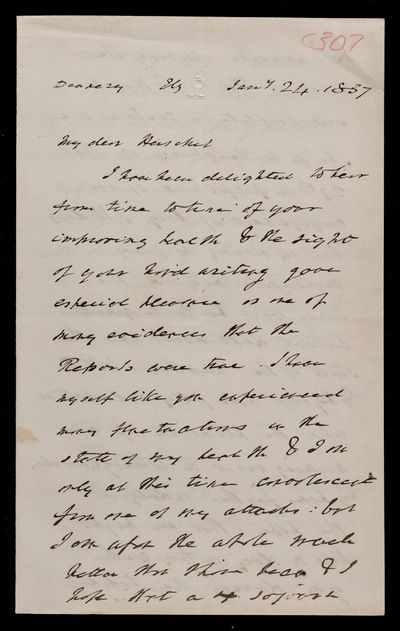 307
Deanery Ely Jany. 24. 1857
My dear Herschel
I have been delighted to hear
from time to time of your
improving health & the sight
of your hand writing gave
especial pleasure as one of
many evidences that the
Reports were true. I have
myself like you experienced
many fluctuations in the
state of my health & I am
only at this time convalescent
from one of my attacks: but
I am upon the whole much
better than I have been & I
hope that a sojourn